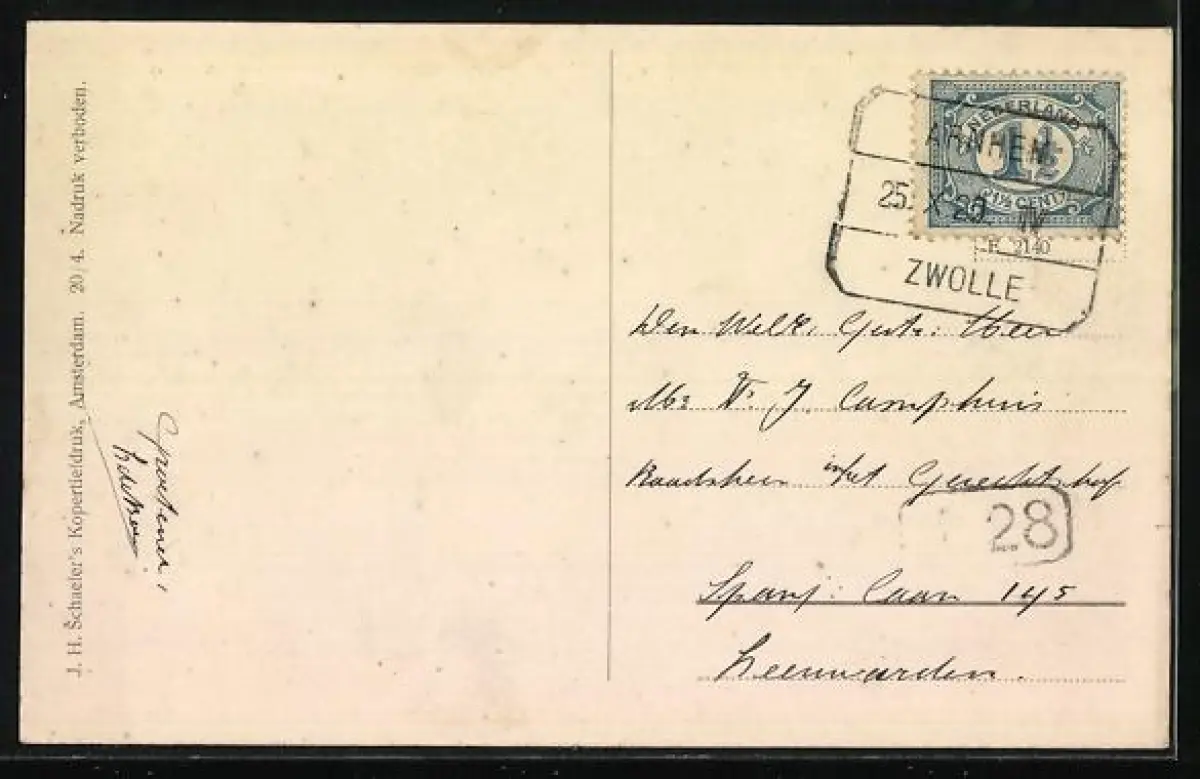 J. H. Schaefer's Kopertiefdruk, Amsterdam. 20/4. Nadruk verboden.
Groeten.
NEDERLAND
1½
1½ CENT
ARNHEM
25. X 20. IV
ZWOLLE
E 2140
Den Welk. Gestr. Heer
Mr W. J. Camphuis
Raadsheer in het Gerechtshof
28
Spanj: Laan 145
Leeuwarden.